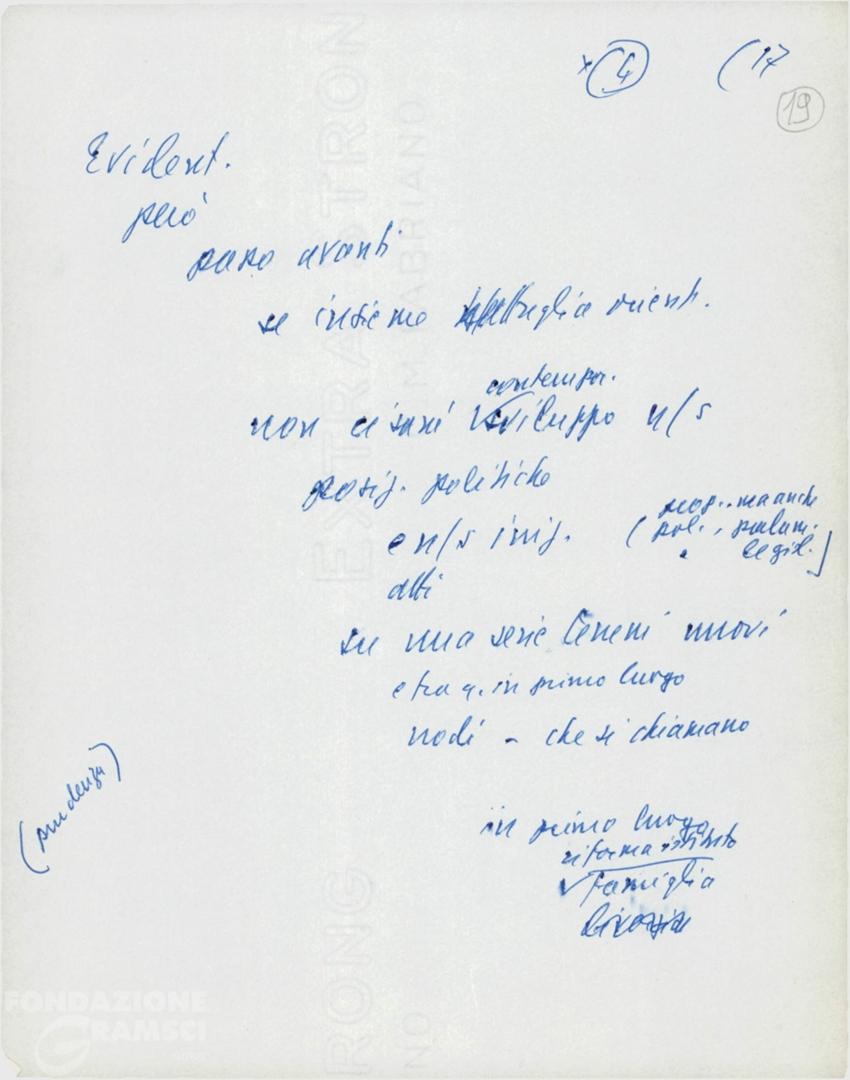 4 (17
19
Evident.
però
passo avanti
se insieme battaglia orient.
contempor.
non ci sarà sviluppo n/s
posiz. politiche
e n/s iniz. (prop. ma anche
pol. parlam.
legisl.)
su una serie terreni nuovi
e tra q. in primo luogo
nodi - che si chiamano
(prudenza)
in primo luogo
riforma istituto
famiglia
divorzio
FONDAZIONE
GRAMSCI
EXTRA STRONG
FABRIANO
RONG
NO